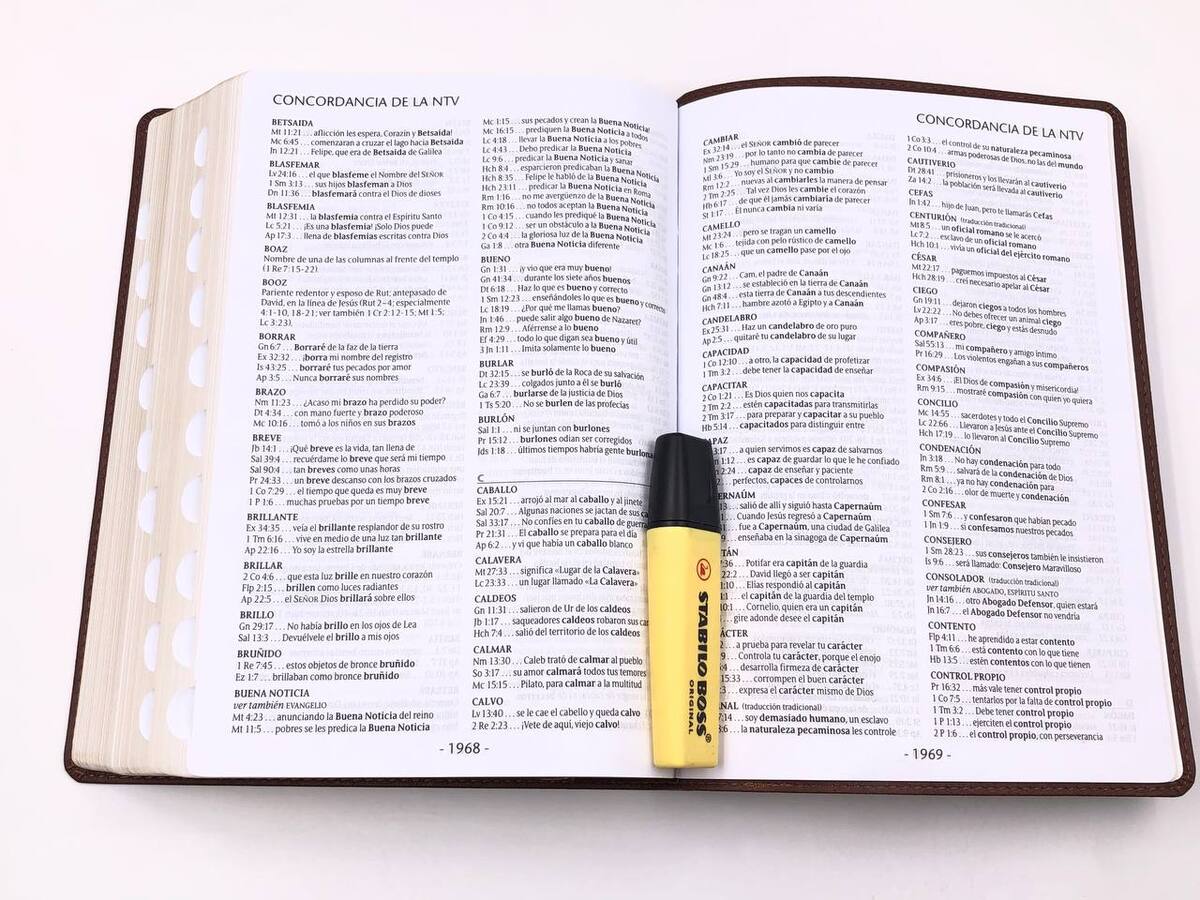 CONCORDANCIA DE LA NTV
BETSAIDA
Mt 11:21 . . . aflicción les espera, Corazín y Betsaida!
Mc 6:45 . . . comenzaran a cruzar el lago hacia Betsaida
Jn 12:21 . . . Felipe, que era de Betsaida de Galilea
BLASFEMAR
Lv 24:16 . . . el que blasfeme el Nombre del SEÑOR
1 Sm 3:13 . . . sus hijos blasfeman a Dios
Dn 11:36 . . . blasfemará contra el Dios de dioses
BLASFEMIA
Mt 12:31 . . . la blasfemia contra el Espíritu Santo
Lc 5:21 . . . ¡Es una blasfemia! ¡Solo Dios puede
Ap 17:3 . . . llena de blasfemias escritas contra Dios
BOAZ
Nombre de una de las columnas al frente del templo
(1 Re 7:15-22)
BOOZ
Pariente redentor y esposo de Rut; antepasado de
David, en la línea de Jesús (Rut 2–4; especialmente
4:1-10, 18-21; ver también 1 Cr 2:12-15; Mt 1:5;
Lc 3:23).
BORRAR
Gn 6:7 . . . Borraré de la faz de la tierra
Ex 32:32 . . . ¡borra mi nombre del registro
Is 43:25 . . . borraré tus pecados por amor
Ap 3:5 . . . Nunca borraré sus nombres
BRAZO
Nm 11:23 . . . ¿Acaso mi brazo ha perdido su poder?
Dt 4:34 . . . con mano fuerte y brazo poderoso
Mc 10:16 . . . tomó a los niños en sus brazos
BREVE
Jb 14:1 . . . ¡Qué breve es la vida, tan llena de
Sal 39:4 . . . recuérdame lo breve que será mi tiempo
Sal 90:4 . . . tan breves como unas horas
Pr 24:33 . . . un breve descanso con los brazos cruzados
1 Co 7:29 . . . el tiempo que queda es muy breve
1 P 1:6 . . . muchas pruebas por un tiempo breve
BRILLANTE
Ex 34:35 . . . veía el brillante resplandor de su rostro
1 Tm 6:16 . . . vive en medio de una luz tan brillante
Ap 22:16 . . . Yo soy la estrella brillante
BRILLAR
2 Co 4:6 . . . que esta luz brille en nuestro corazón
Flp 2:15 . . . brillen como luces radiantes
Ap 22:5 . . . el SEÑOR Dios brillará sobre ellos
BRILLO
Gn 29:17 . . . No había brillo en los ojos de Lea
Sal 13:3 . . . Devuélvele el brillo a mis ojos
BRUÑIDO
1 Re 7:45 . . . estos objetos de bronce bruñido
Ez 1:7 . . . brillaban como bronce bruñido
BUENA NOTICIA
ver también EVANGELIO
Mt 4:23 . . . anunciando la Buena Noticia del reino
Mt 11:5 . . . pobres se les predica la Buena Noticia
Mc 1:15 . . . sus pecados y crean la Buena Noticia!
Mc 16:15 . . . prediquen la Buena Noticia a todos
Lc 4:18 . . . llevar la Buena Noticia a los pobres
Lc 4:43 . . . Debo predicar la Buena Noticia
Lc 9:6 . . . predicar la Buena Noticia y sanar
Hch 8:4 . . . esparcieron predicaban la Buena Noticia
Hch 8:35 . . . Felipe le habló de la Buena Noticia
Hch 23:11 . . . predicar la Buena Noticia en Roma
Rm 1:16 . . . no me avergüenzo de la Buena Noticia
Rm 10:16 . . . no todos aceptan la Buena Noticia
1 Co 4:15 . . . cuando les prediqué la Buena Noticia
1 Co 9:12 . . . ser un obstáculo a la Buena Noticia
2 Co 4:4 . . . la gloriosa luz de la Buena Noticia
Ga 1:8 . . . otra Buena Noticia diferente
BUENO
Gn 1:31 . . . ¡y vio que era muy bueno!
Gn 41:34 . . . durante los siete años buenos
Dt 6:18 . . . Haz lo que es bueno y correcto
1 Sm 12:23 . . . enseñándoles lo que es bueno y correcto
Lc 18:19 . . . ¿Por qué me llamas bueno?
Jn 1:46 . . . puede salir algo bueno de Nazaret?
Rm 12:9 . . . Aférrense a lo bueno
Ef 4:29 . . . todo lo que digan sea bueno y útil
3 Jn 1:11 . . . Imita solamente lo bueno
BURLAR
Dt 32:15 . . . se burló de la Roca de su salvación
Lc 23:39 . . . colgados junto a él se burló
Ga 6:7 . . . burlarse de la justicia de Dios
1 Ts 5:20 . . . No se burlen de las profecías
BURLÓN
Sal 1:1 . . . ni se juntan con burlones
Pr 15:12 . . . burlones odian ser corregidos
Jds 1:18 . . . últimos tiempos habría gente burlona
C
CABALLO
Ex 15:21 . . . arrojó al mar al caballo y al jinete
Sal 20:7 . . . Algunas naciones se jactan de sus
Sal 33:17 . . . No confíes en tu caballo de guerra
Pr 21:31 . . . El caballo se prepara para el día
Ap 6:2 . . . y vi que había un caballo blanco
CALAVERA
Mt 27:33 . . . significa «Lugar de la Calavera»
Lc 23:33 . . . un lugar llamado «La Calavera»
CALDEOS
Gn 11:31 . . . salieron de Ur de los caldeos
Jb 1:17 . . . saqueadores caldeos robaron sus
Hch 7:4 . . . salió del territorio de los caldeos
CALMAR
Nm 13:30 . . . Caleb trató de calmar al pueblo
So 3:17 . . . su amor calmará todos tus temores
Mc 15:15 . . . Pilato, para calmar a la multitud
CALVO
Lv 13:40 . . . se le cae el cabello y queda calvo
2 Re 2:23 . . . ¡Vete de aquí, viejo calvo!
- 1968 -
CONCORDANCIA DE LA NTV
CAMBIAR
Ex 32:14 . . . el SEÑOR cambió de parecer
Nm 23:19 . . . por lo tanto no cambia de parecer
1 Sm 15:29 . . . humano para que cambie de parecer
Ml 3:6 . . . Yo soy el SEÑOR y no cambio
Rm 12:2 . . . nuevas al cambiarles la manera de pensar
2 Tm 2:25 . . . Tal vez Dios les cambie el corazón
Hb 6:17 . . . de que él jamás cambiaría de parecer
St 1:17 . . . Él nunca cambia ni varía
CAMELLO
Mt 23:24 . . . pero se tragan un camello
Mc 1:6 . . . tejida con pelo rústico de camello
Lc 18:25 . . . que un camello pase por el ojo
CANAÁN
Gn 9:22 . . . Cam, el padre de Canaán
Gn 13:12 . . . se estableció en la tierra de Canaán
Gn 48:4 . . . esta tierra de Canaán a tus descendientes
Hch 7:11 . . . hambre azotó a Egipto y a Canaán
CANDELABRO
Ex 25:31 . . . Haz un candelabro de oro puro
Ap 2:5 . . . quitaré tu candelabro de su lugar
CAPACIDAD
1 Co 12:10 . . . a otro, la capacidad de profetizar
1 Tm 3:2 . . . debe tener la capacidad de enseñar
CAPACITAR
2 Co 1:21 . . . Es Dios quien nos capacita
2 Tm 2:2 . . . estén capacitadas para transmitirlas
2 Tm 3:17 . . . para preparar y capacitar a su pueblo
Hb 5:14 . . . capacitados para distinguir entre
APAZ
3:17 . . . a quien servimos es capaz de salvarnos
1:12 . . . es capaz de guardar lo que le he confiado
2:24 . . . capaz de enseñar y paciente
2 . . . perfectos, capaces de controlarnos
ERNAÚM
:13 . . . salió de allí y siguió hasta Capernaúm
. . . Cuando Jesús regresó a Capernaúm
. . . fue a Capernaúm, una ciudad de Galilea
9 . . . enseñaba en la sinagoga de Capernaúm
TÁN
:36 . . . Potifar era capitán de la guardia
22:2 . . . David llegó a ser capitán
:10 . . . Elías respondió al capitán
:1 . . . el capitán de la guardia del templo
0:1 . . . Cornelio, quien era un capitán
. . . gire adonde desee el capitán
ÁCTER
. . . a prueba para revelar tu carácter
9 . . . Controla tu carácter, porque el enojo
:4 . . . desarrolla firmeza de carácter
15:33 . . . corrompen el buen carácter
:3 . . . expresa el carácter mismo de Dios
NAL (traducción tradicional)
7:14 . . . soy demasiado humano, un esclavo
8:6 . . . la naturaleza pecaminosa les controle
1 Co 3:3 . . . el control de su naturaleza pecaminosa
2 Co 10:4 . . . armas poderosas de Dios, no las del mundo
CAUTIVERIO
Dt 28:41 . . . prisioneros y los llevarán al cautiverio
Za 14:2 . . . la población será llevada al cautiverio
CEFAS
Jn 1:42 . . . hijo de Juan, pero te llamarás Cefas
CENTURIÓN (traducción tradicional)
Mt 8:5 . . . un oficial romano se le acercó
Lc 7:2 . . . esclavo de un oficial romano
Hch 10:1 . . . vivía un oficial del ejército romano
CÉSAR
Mt 22:17 . . . paguemos impuestos al César
Hch 28:19 . . . creí necesario apelar al César
CIEGO
Gn 19:11 . . . dejaron ciegos a todos los hombres
Lv 22:22 . . . No debes ofrecer un animal ciego
Ap 3:17 . . . eres pobre, ciego y estás desnudo
COMPAÑERO
Sal 55:13 . . . mi compañero y amigo íntimo
Pr 16:29 . . . Los violentos engañan a sus compañeros
COMPASIÓN
Ex 34:6 . . . ¡El Dios de compasión y misericordia!
Rm 9:15 . . . mostraré compasión con quien yo quiera
CONCILIO
Mc 14:55 . . . sacerdotes y todo el Concilio Supremo
Lc 22:66 . . . Llevaron a Jesús ante el Concilio Supremo
Hch 17:19 . . . lo llevaron al Concilio Supremo
CONDENACIÓN
Jn 3:18 . . . No hay condenación para todo
Rm 5:9 . . . salvará de la condenación de Dios
Rm 8:1 . . . ya no hay condenación para
2 Co 2:16 . . . olor de muerte y condenación
CONFESAR
1 Sm 7:6 . . . y confesaron que habían pecado
1 Jn 1:9 . . . si confesamos nuestros pecados
CONSEJERO
1 Sm 28:23 . . . sus consejeros también le insistieron
Is 9:6 . . . será llamado: Consejero Maravilloso
CONSOLADOR (traducción tradicional)
ver también ABOGADO, ESPÍRITU SANTO
Jn 14:16 . . . otro Abogado Defensor, quien estará
Jn 16:7 . . . el Abogado Defensor no vendría
CONTENTO
Flp 4:11 . . . he aprendido a estar contento
1 Tm 6:6 . . . está contento con lo que tiene
Hb 13:5 . . . estén contentos con lo que tienen
CONTROL PROPIO
Pr 16:32 . . . más vale tener control propio
1 Co 7:5 . . . tentarlos por la falta de control propio
1 Tm 3:2 . . . Debe tener control propio
1 P 1:13 . . . ejerciten el control propio
2 P 1:6 . . . el control propio, con perseverancia
- 1969 -
STABILO BOSS®
ORIGINAL